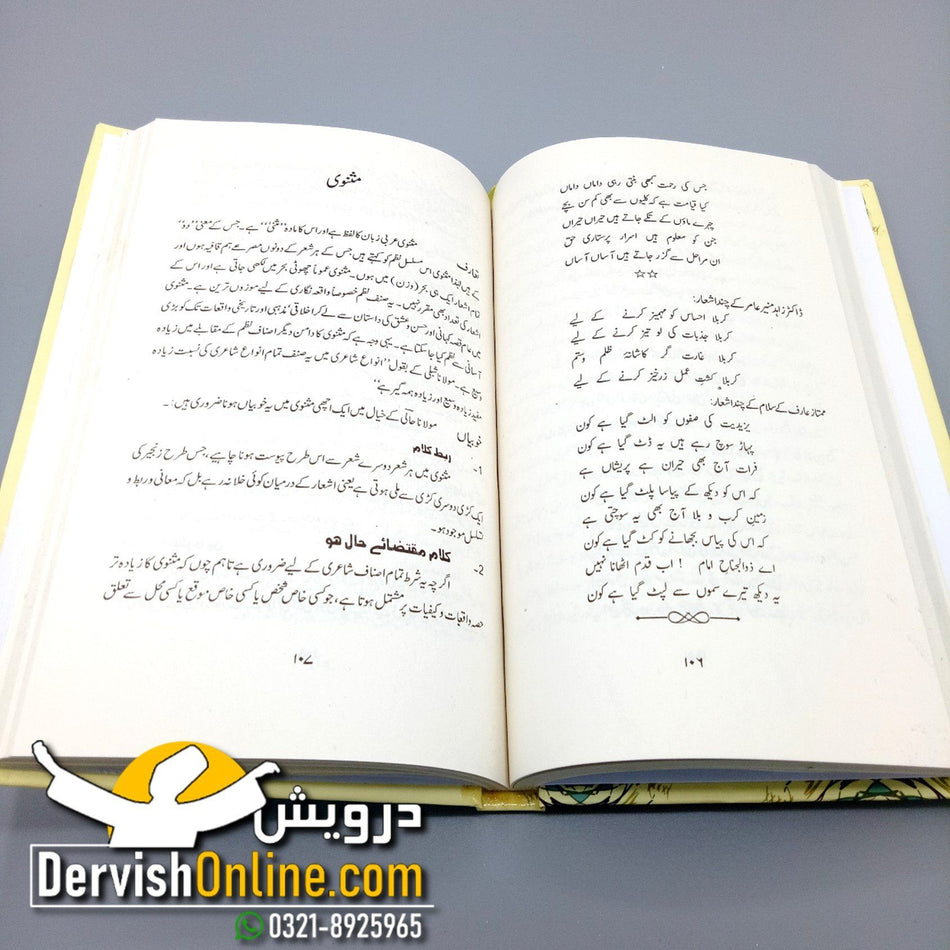 جس کی رحمت کبھی بنتی رہی داماں داماں
کیا قیامت ہے کہ کلیوں سے بھی کم سن بچے
چہرے ماؤں کے تکے جاتے ہیں حیراں حیراں
جن کو معلوم ہیں اسرار پرستاری حق
ان مراحل سے گزر جاتے ہیں آساں آساں
☆☆
ڈاکٹر زاہد منیر عامر کے چند اشعار:
کربلا احساس کو مہمیز کرنے کے لیے
کربلا جذبات کی لو تیز کرنے کے لیے
کربلا غارت گر کاشانۂ ظلم و ستم
کربلا کشتِ عمل زرخیز کرنے کے لیے
ممتاز عارف کے سلام کے چند اشعار:
یزیدیت کی صفوں کو الٹ گیا ہے کون
پہاڑ سوچ رہے ہیں یہ ڈٹ گیا ہے کون
فرات آج بھی حیران ہے پریشاں ہے
کہ اس کو دیکھ کے پیاسا پلٹ گیا ہے کون
زمینِ کرب و بلا آج بھی یہ سوچتی ہے
کہ اس کی پیاس بجھانے کو کٹ گیا ہے کون
اے ذوالجناح امام ! اب قدم اٹھانا نہیں
یہ دیکھ تیرے سموں سے لپٹ گیا ہے کون
۱۰۶
مثنوی
تعارف
مثنوی عربی زبان کا لفظ ہے اور اس کا مادہ ”مثنٰی“ ہے۔ جس کے معنی ”دو“
کے ہیں لہٰذا مثنوی اس مسلسل نظم کو کہتے ہیں جس کے ہر شعر کے دونوں مصرعے ہم قافیہ ہوں اور
تمام اشعار ایک ہی بحر (وزن) میں ہوں۔ مثنوی عموماً چھوٹی بحر میں لکھی جاتی ہے اور اس کے
اشعار کی تعداد بھی مقرر نہیں۔ یہ صنف نظم خصوصاً واقعہ نگاری کے لیے موزوں ترین ہے۔ مثنوی
میں عام قصہ کہانی اور حسن و عشق کی داستان سے لے کر اخلاقی، مذہبی اور تاریخی واقعات تک کو بڑی
آسانی سے نظم کیا جا سکتا ہے۔ یہی وجہ ہے کہ مثنوی کا دامن دیگر اصناف نظم کے مقابلے میں زیادہ
وسیع ہے۔ مولانا شبلی کے بقول ”انواع شاعری میں یہ صنف تمام انواع شاعری کی نسبت زیادہ
مفید زیادہ وسیع اور زیادہ ہمہ گیر ہے“
خوبیاں
مولانا حالی کے خیال میں ایک اچھی مثنوی میں یہ خوبیاں ہونا ضروری ہیں:۔
1- ربط کلام
مثنوی میں ہر شعر دوسرے شعر سے اس طرح پیوست ہونا چاہیے، جس طرح زنجیر کی
ایک کڑی دوسری کڑی سے ملی ہوتی ہے یعنی اشعار کے درمیان کوئی خلا نہ رہے بل کہ معانی و ربط و
تسلسل موجود ہو۔
2- کلام مقتضائے حال ہو
اگرچہ یہ شرط تمام اصناف شاعری کے لیے ضروری ہے تاہم چوں کہ مثنوی کا زیادہ تر
حصہ واقعات و کیفیات پر مشتمل ہوتا ہے، جو کسی خاص شخص یا کسی خاص موقع یا کسی محل سے تعلق
۱۰۷
درویش
DervishOnline.com
0321-8925965